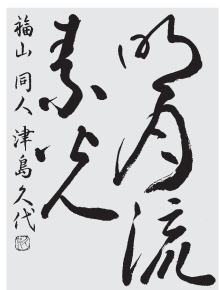 明月流
素光
福山 同人 津島久代